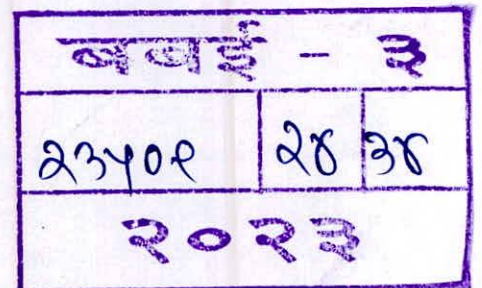 बबई - ३
२३५०९ २४ ३४
२०२३